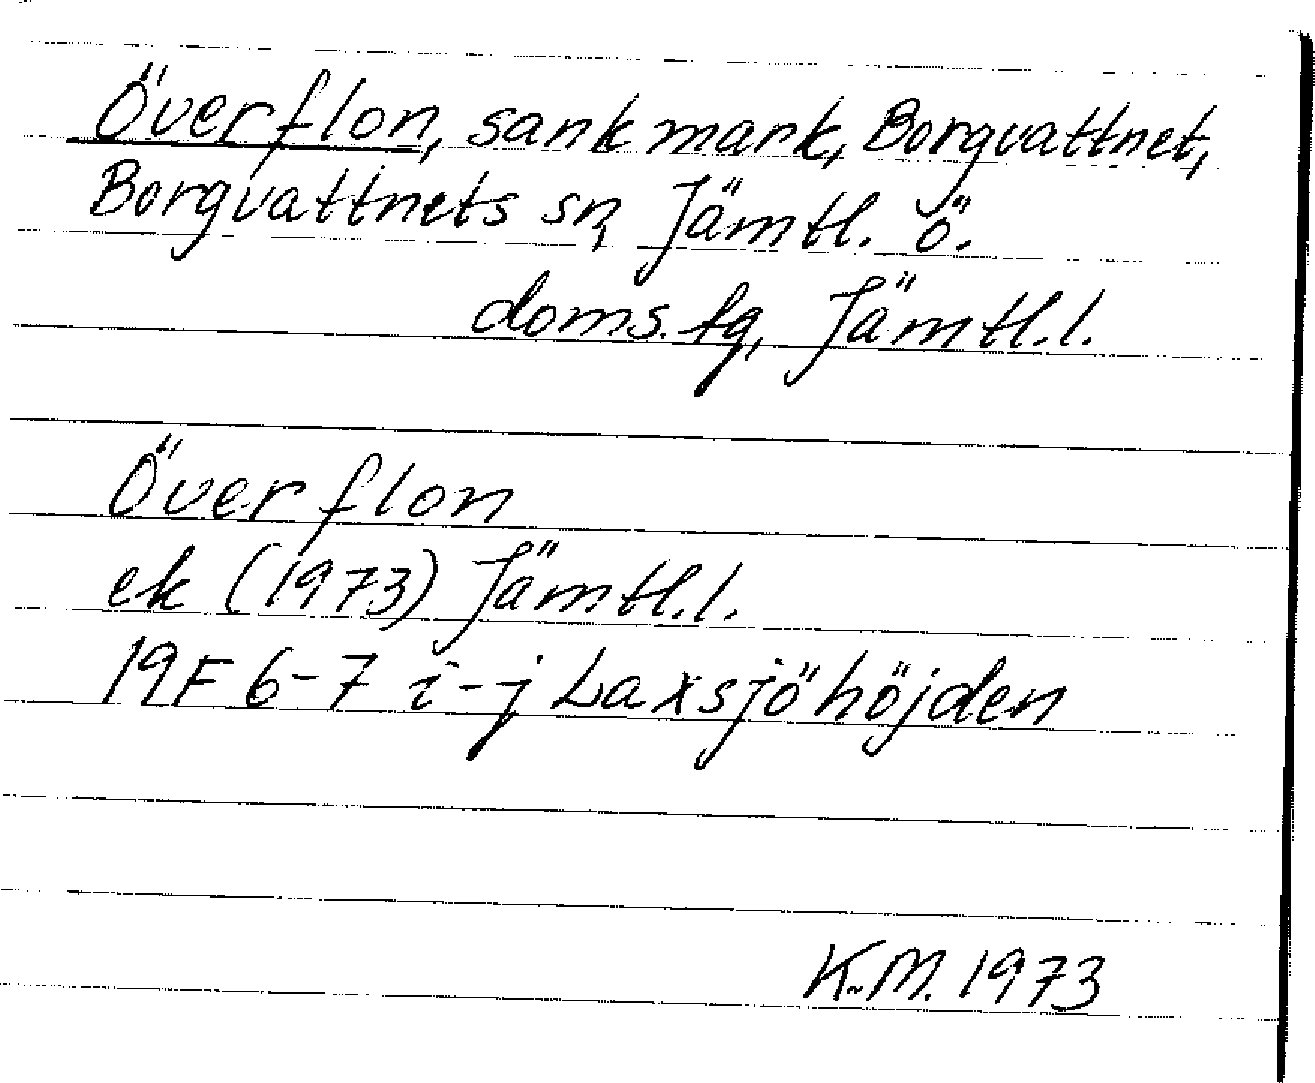 Överflon, sank mark, Borgvattnet,
Borgvattnets sn, Jämtl. ö.
doms. fg, Jämtl.l.
Överflon
ek (1973) Jämtl.l.
19F 6-7 i-j Laxsjöhöjden
K.M. 1973